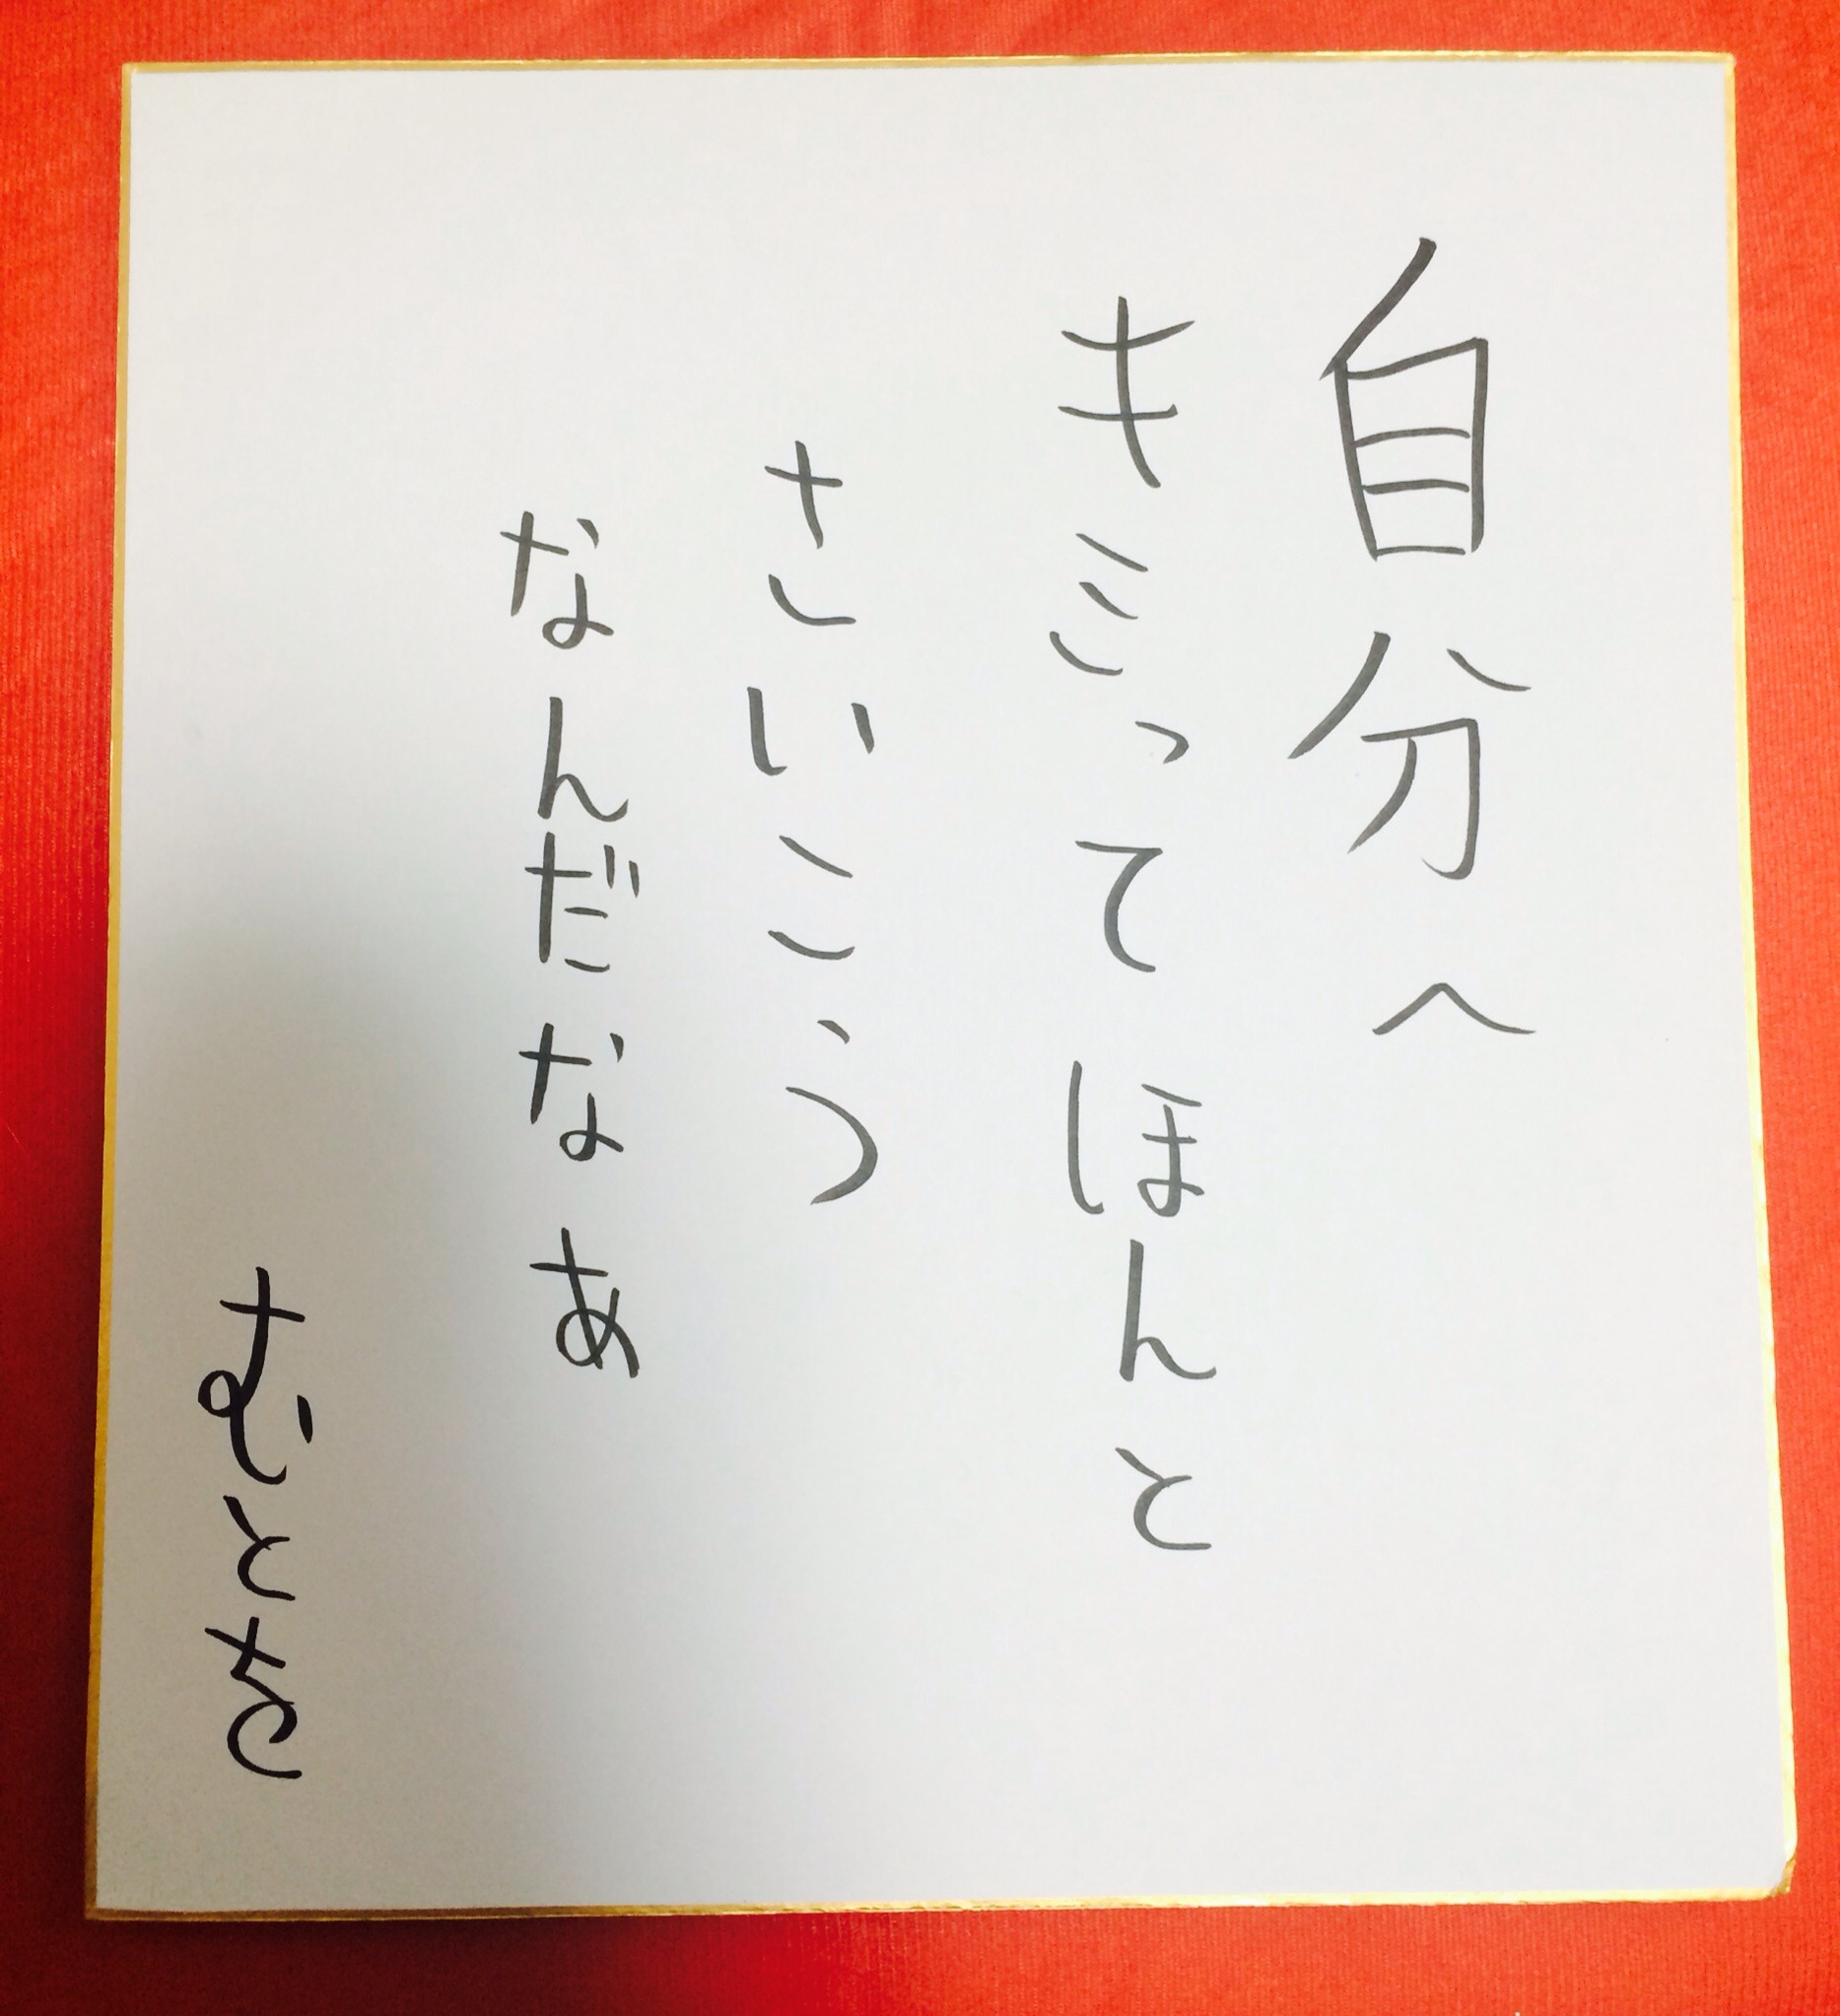 自分へ
キミってほんと
さいこう
なんだなあ
むとち